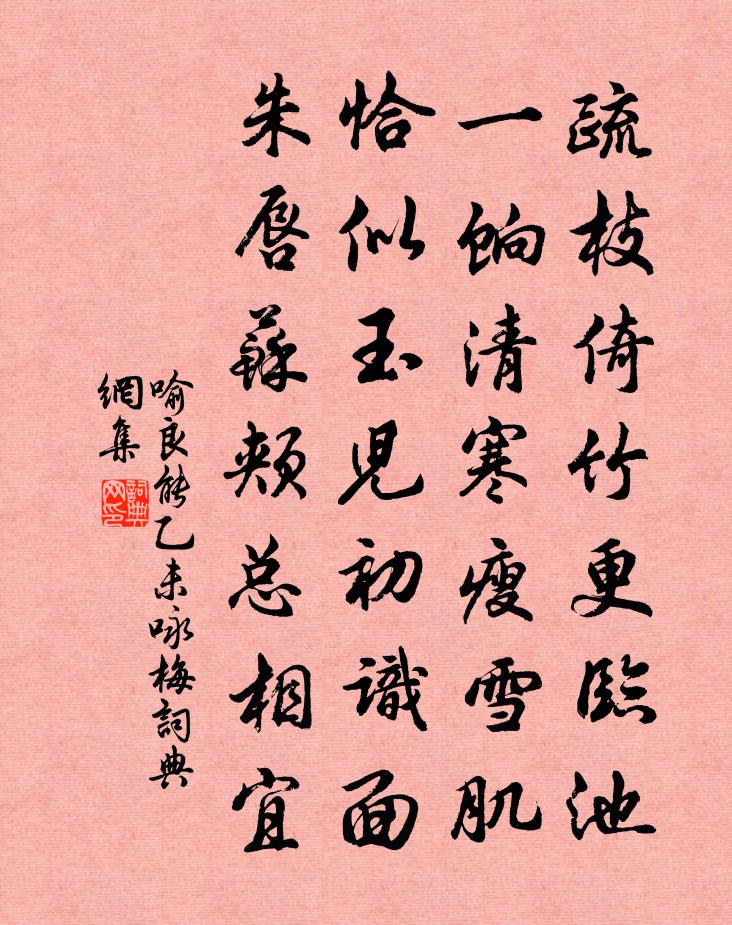 疏枝倚竹更臨池
一餉清寒瘦雪肌
恰似玉児初識面
朱唇蘇頰总相宜
喻良能乙未咏梅詞典
網集
詞典
网印